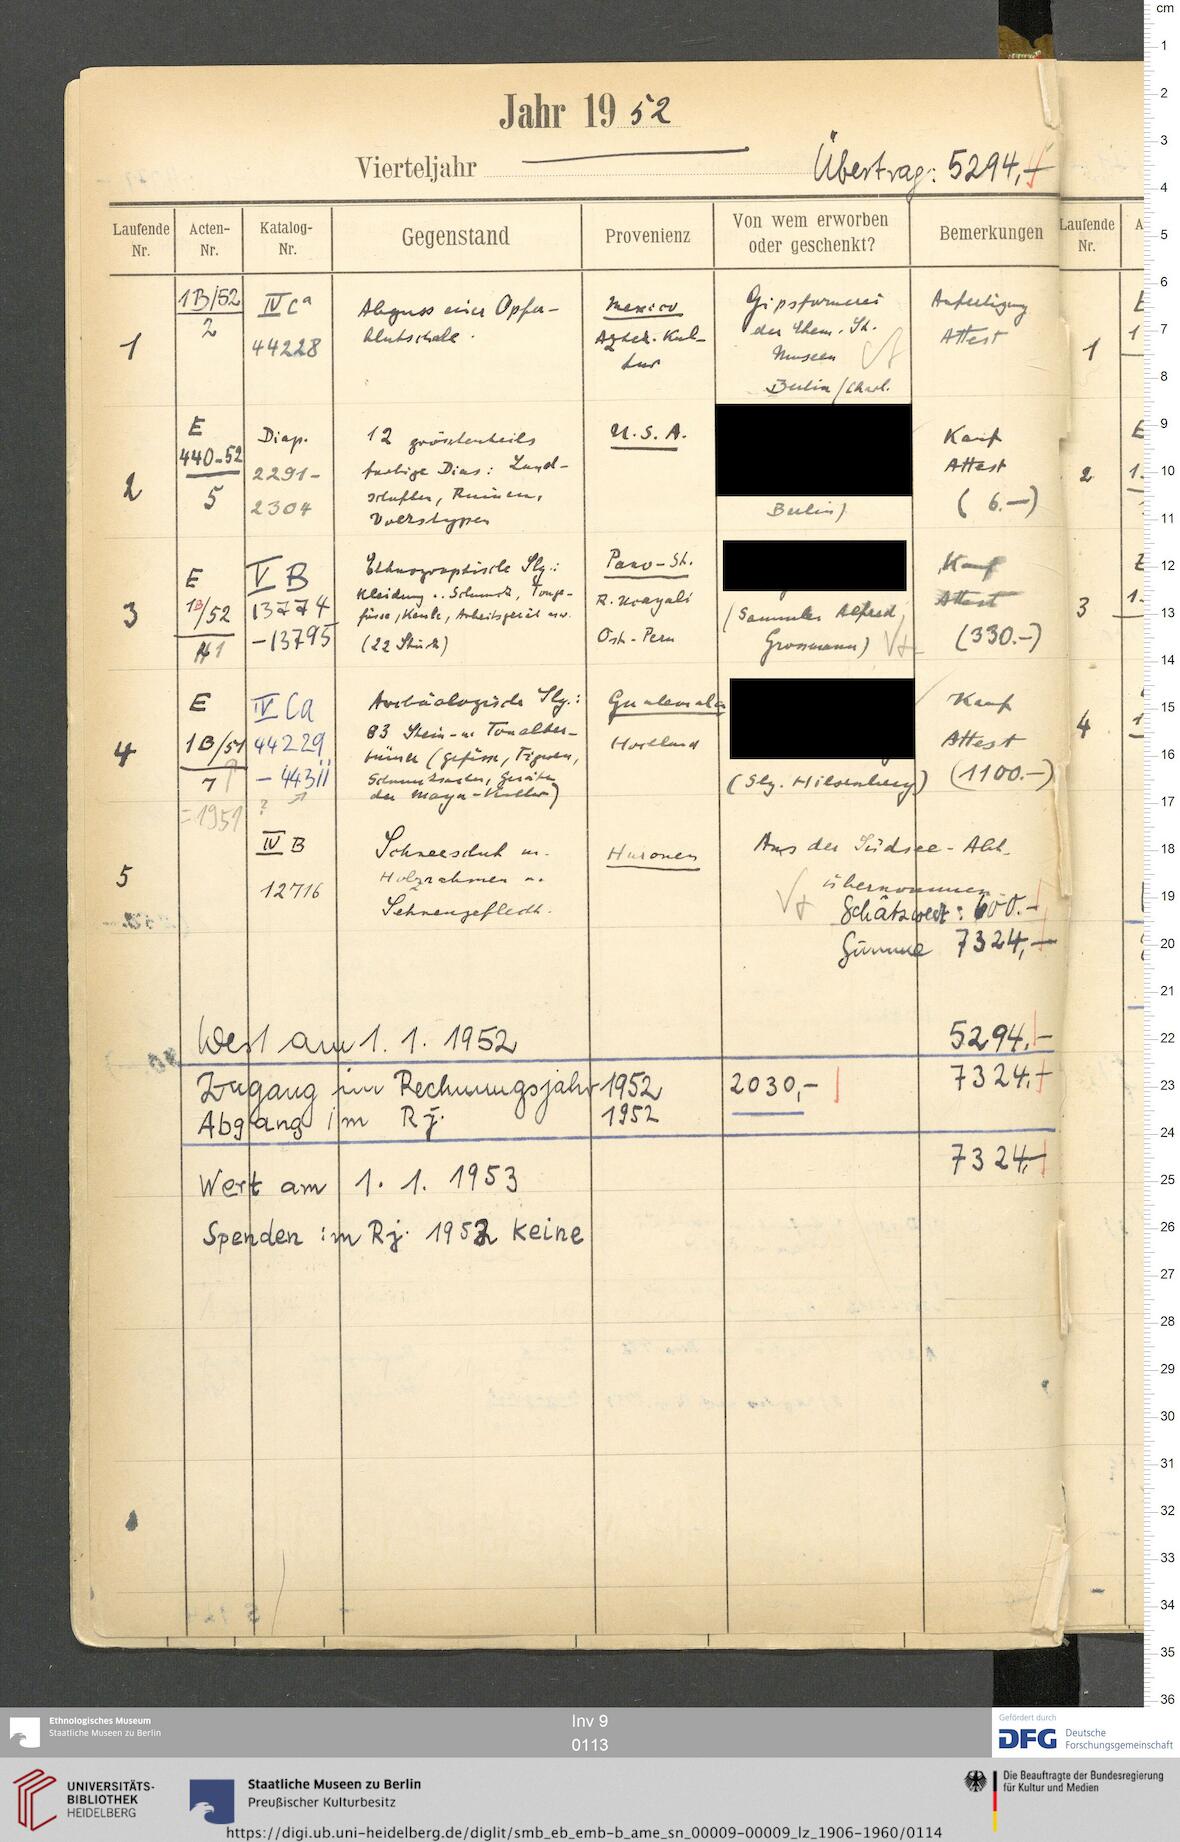 Jahr 19 52
Vierteljahr
Übertrag: 5294,-
Laufende Nr.
Acten-Nr.
Katalog-Nr.
Gegenstand
Provenienz
Von wem erworben oder geschenkt?
Bemerkungen
Laufende Nr.
A
1
1B/52
2
IV Ca
44228
Abguss einer Opfer-
blutschale.
Mexico
Aztek. Kul-
tur
Gipsformerei
der Ehem. St.
Museen
Berlin/Charl.
Anfertigung
Attest
1
2
E
440-52
5
Diap.
2291-
2304
12 grösstenteils
farbige Dias: Land-
schaften, Ruinen,
Volkstypen
U.S.A.
Berlin)
Kauf
Attest
(6.-)
2
3
E
1B/52
41
V B
13774
-13795
Ethnographische Slg.:
Kleidung u. Schmuck, Tonge-
fässe, Keule, Arbeitsgerät usw.
(22 Stück)
Pano-St.
R. Ucayali
Ost-Peru
(Sammler Alfred
Grossmann)
Kauf
Attest
(330.-)
3
4
E
1B/51
7
=1951
IV Ca
44229
-44311
?
Archäologische Slg.:
83 Stein- u. Tonalter-
tümer (Gefässe, Figuren,
Schmucksachen, Geräte
der Maya-Kultur)
Guatemala
Hochland
(Slg. Hilsenberg)
Kauf
Attest
(1100.-)
4
5
IV B
12716
Schneeschuh m.
Holzrahmen u.
Sehnengeflecht.
Huronen
Aus der Südsee-Abt.
übernommen
Schätzwert: 600.-
Summe 7324,-
Wert am 1. 1. 1952 5294,-
Zugang im Rechnungsjahr 1952 2030,- 7324,-
Abgang im Rj. 1952
7324,-
Wert am 1. 1. 1953
Spenden im Rj. 1952 keine
cm
1
2
3
4
5
6
7
8
9
10
11
12
13
14
15
16
17
18
19
20
21
22
23
24
25
26
27
28
29
30
31
32
33
34
35
36
Ethnologisches Museum
Staatliche Museen zu Berlin
Inv 9
0113
Gefördert durch
DFG Deutsche
Forschungsgemeinschaft
UNIVERSITÄTS-
BIBLIOTHEK
HEIDELBERG
Staatliche Museen zu Berlin
Preußischer Kulturbesitz
Die Beauftragte der Bundesregierung
für Kultur und Medien
https://digi.ub.uni-heidelberg.de/diglit/smb_eb_emb-b_ame_sn_00009-00009_lz_1906-1960/0114